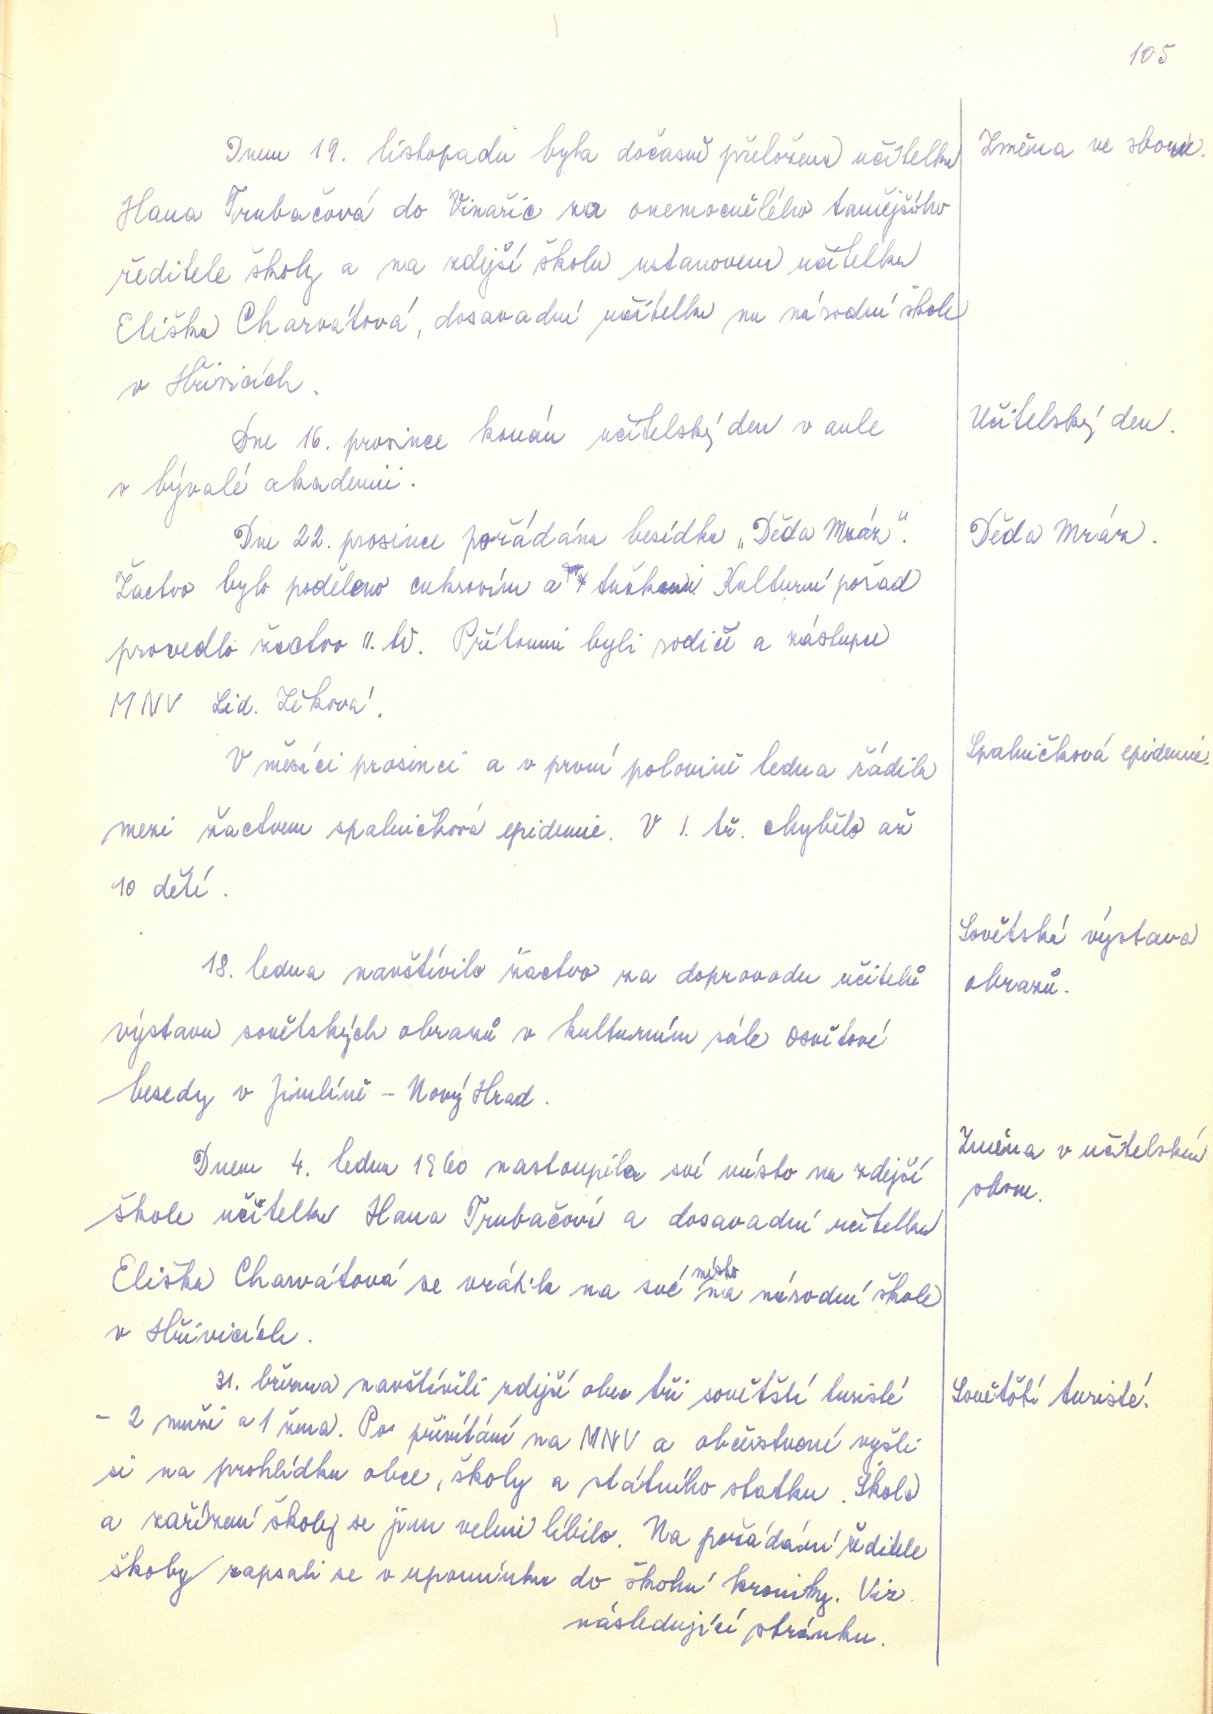 105
Dnem 19. listopadu byla dočasně přeložena učitelka
Změna ve sboru.
Hana Trubačová do Vinařic za onemocnělého tamějšího
ředitele školy a na zdejší školu ustanovena učitelka
Eliška Charvátová, dosavadní učitelka na národní škole
v Hřivicích.
Dne 16. prosince konán učitelský den v aule
Učitelský den.
v bývalé akademii.
Dne 22. prosince pořádána besídka „Děda Mráz".
Děda Mráz.
Žactvo bylo poděleno cukrovím a tužkami. Kulturní pořad
provedlo žactvo II. tř. Přítomni byli rodiče a zástupce
MNV Lid. Zíková.
V měsíci prosinci a v první polovině ledna řádila
Spalničková epidemie.
mezi žactvem spalničková epidemie. V I. tř. chybělo až
10 dětí.
18. ledna navštívilo žactvo za doprovodu učitelů
Sovětská výstava
obrazů.
výstavu sovětských obrazů v kulturním sále osvětové
besedy v Jimlíně – Nový Hrad.
Dnem 4. ledna 1960 nastoupila své místo na zdejší
Změna v učitelském
sboru.
škole učitelka Hana Trubačová a dosavadní učitelka
Eliška Charvátová se vrátila na své místo na národní škole
v Hřivicích.
31. března navštívili zdejší obec tři sovětští turisté
Sovětští turisté.
– 2 muži a 1 žena. Po přivítání na MNV a občerstvení vyšli
si na prohlídku obce, školy a státního statku. Škola
a zařízení školy se jim velmi líbilo. Na požádání ředitele
školy zapsali se v upomínku do školní kroniky. Viz
následující stránku.